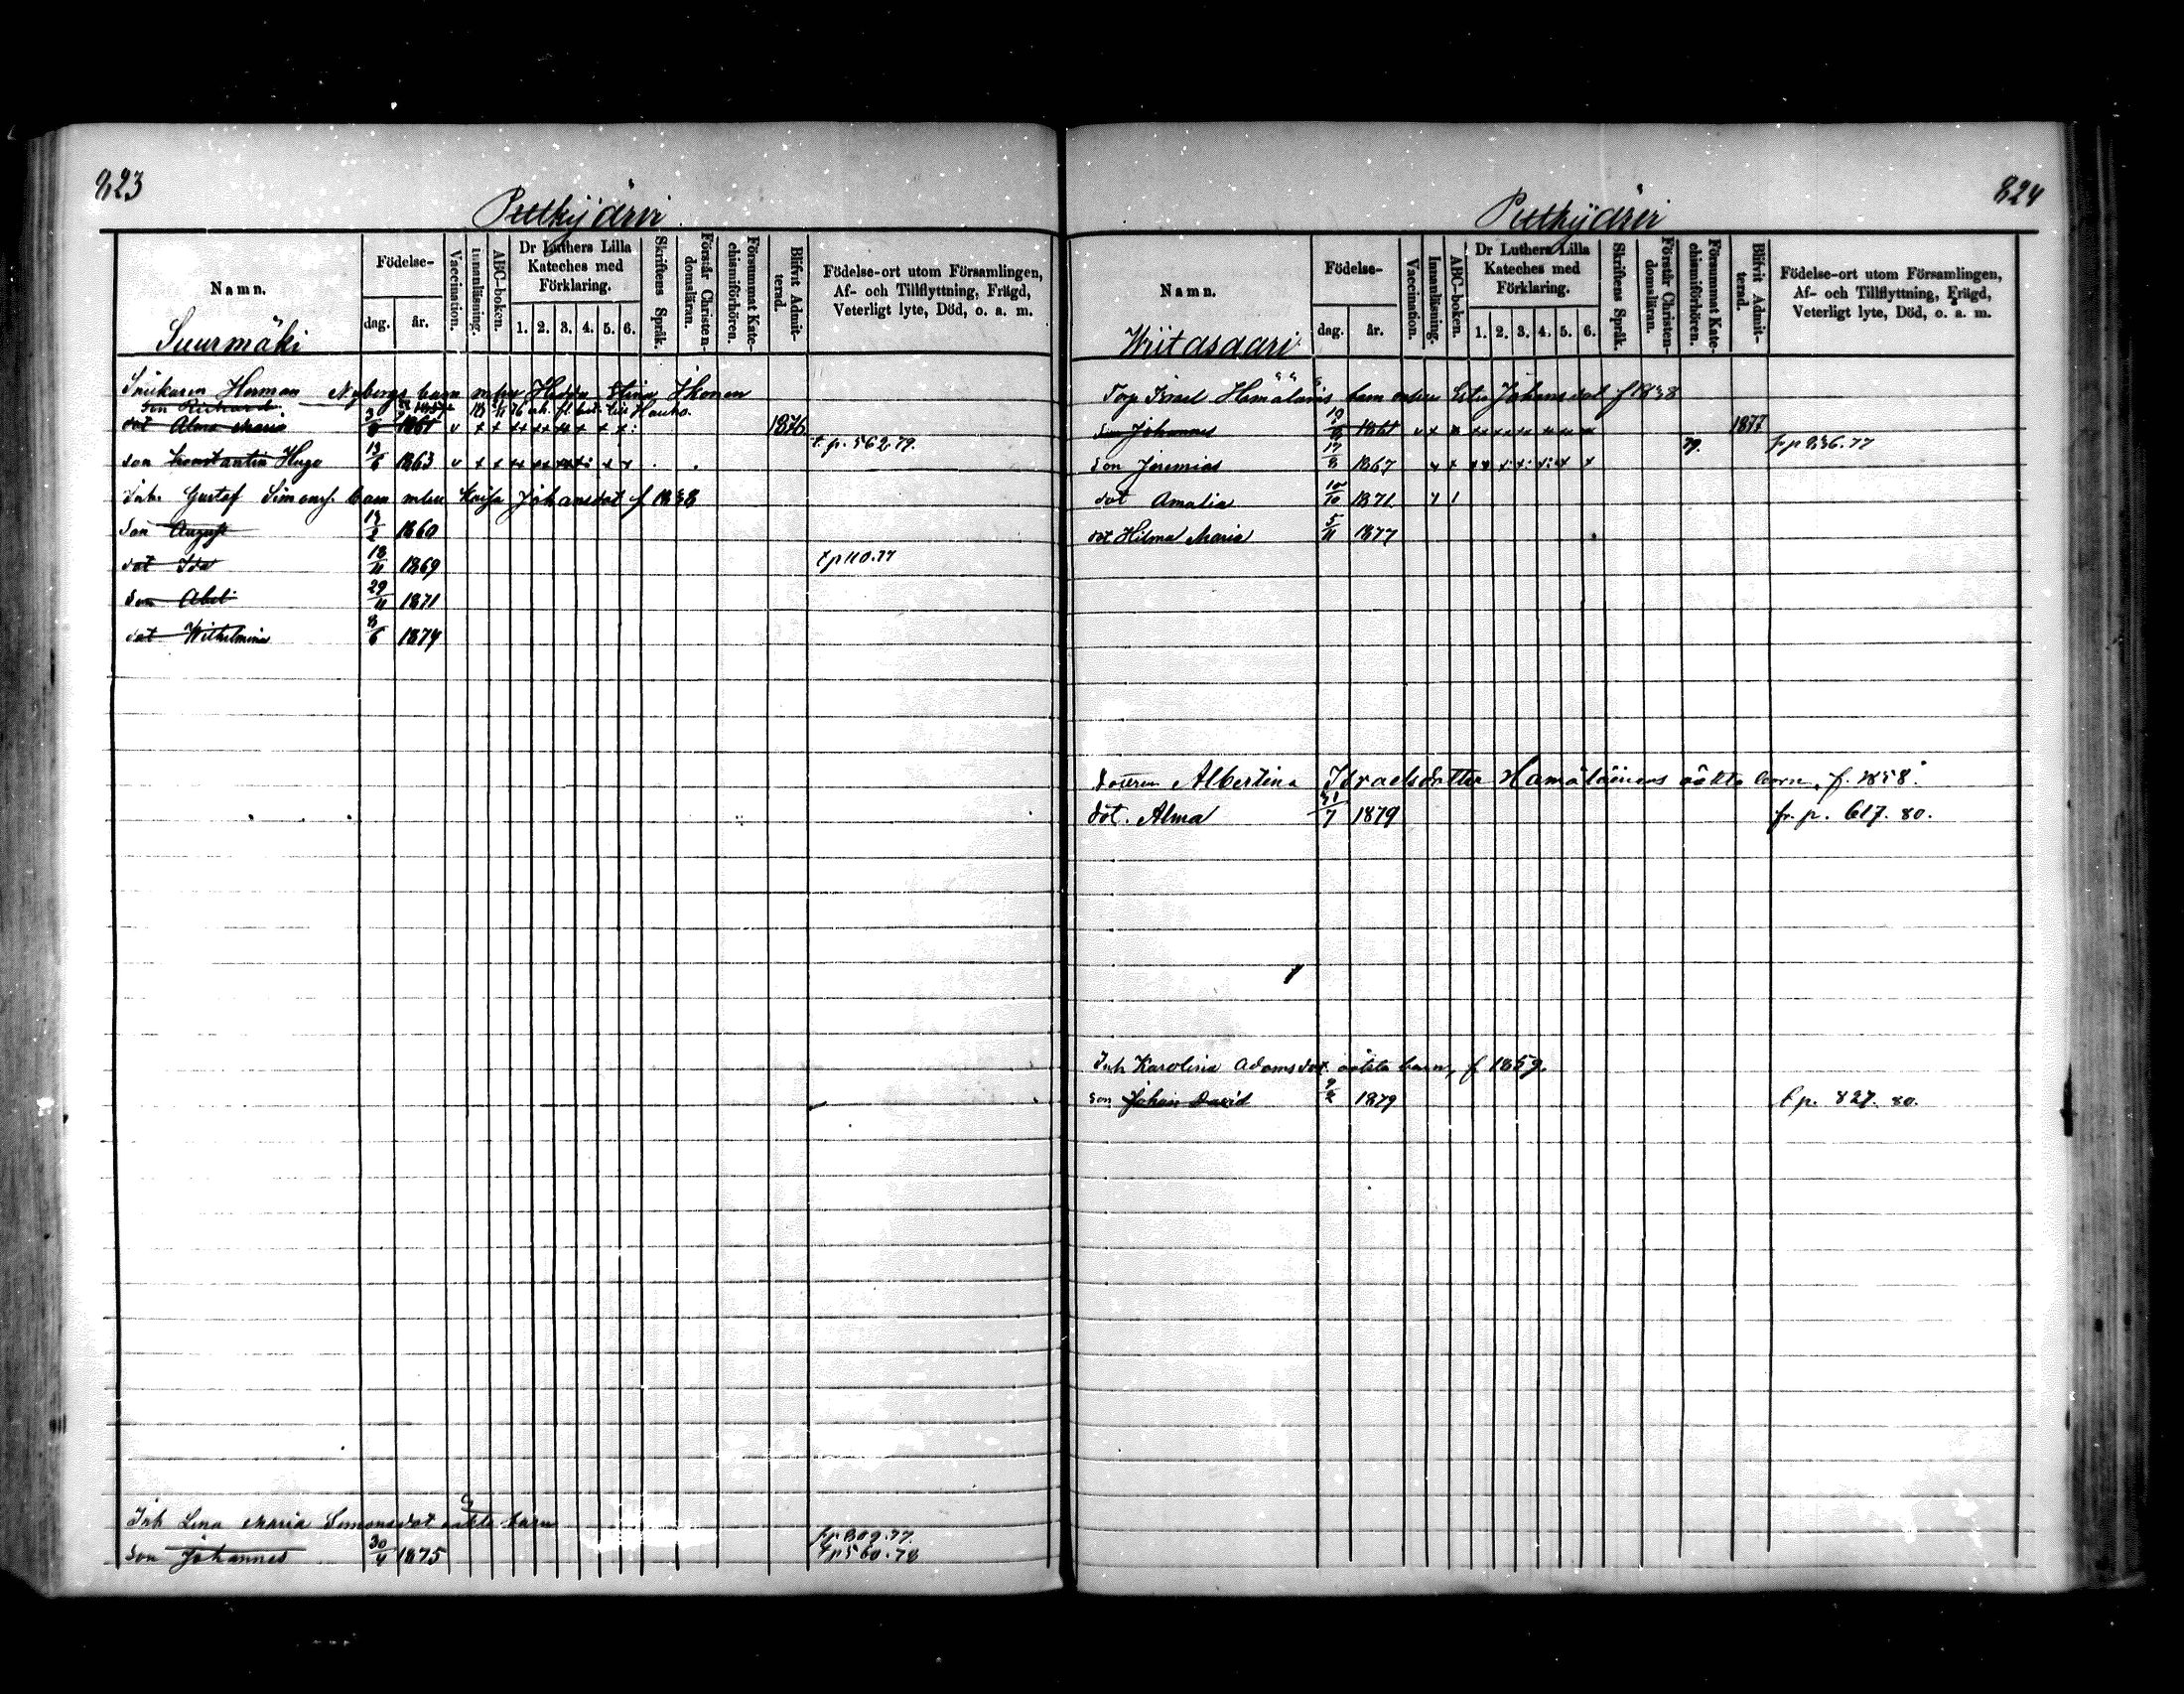 823
Putkijärvi
Namn.
Födelse-
dag. år.
Vaccination.
Innanläsning.
ABC-boken.
Dr Luthers Lilla
Kateches med
Förklaring.
1. 2. 3. 4. 5. 6.
Skriftens Språk.
Förstår Christen-
domsläran.
Försummat Kate-
chismiförhören.
Blifvit Admit-
terad.
Födelse-ort utom Församlingen,
Af- och Tillflyttning, Frägd,
Veterligt lyte, Död, o. a. m.
Suurmäki
Snickaren Herman Nybergs barn m hu Hedda Stina Ikonen
Son Richard
dot Alma Maria 3/8 1861 v + + ++ ++ ++ + + : 1876
t. p. 562.79.
son Konstantin Hugo 13/6 1863 v + +
Inh. Gustaf Simons. barn m hu Kaisa Johansdot f 1838
Son August 17/2 1860
dot Ida 18/11 1869 t p 110.77
Son Abel 29/11 1871
dot Wilhelmina 8/6 1874
Inh Lena Maria Simonsdot oäkta barn
fr p 809.77.
Son Johannes 30/4 1875 t p 560.78
824
Putkijärvi
Namn.
Födelse-
dag. år.
Vaccination.
Innanläsning.
ABC-boken.
Dr Luthers Lilla
Kateches med
Förklaring.
1. 2. 3. 4. 5. 6.
Skriftens Språk.
Förstår Christen-
domsläran.
Försummat Kate-
chismiförhören.
Blifvit Admit-
terad.
Födelse-ort utom Församlingen,
Af- och Tillflyttning, Frägd,
Veterligt lyte, Död, o. a. m.
Wiitasaari
Torp Israel Hämäläinis barn m hu Johansdot f 1838
Son Johannes 1861 1877
Son Jeremias 17/8 1867 79. fr p 836.77
dot Amalia 15/10 1871
dot Hilma Maria 5/11 1877
Albertina Israelsdotter Hämäläinens oäkta barn, f. 1858.
dot. Alma 31/7 1879 fr. p. 617. 80.
Inh Karolina Adamsdot. oäkta barn, f 1859.
son Johan David 9/2 1879 t p. 827. 80.